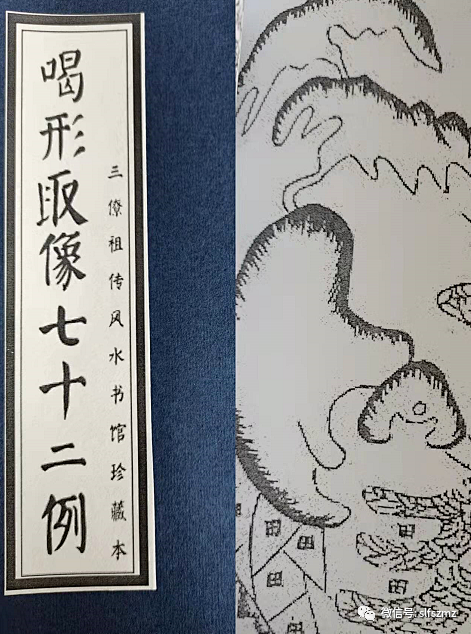 喝形取像七十二例
三僚祖传风水书馆珍藏本
田 田
田 田
田
田
微信号: slfszmz